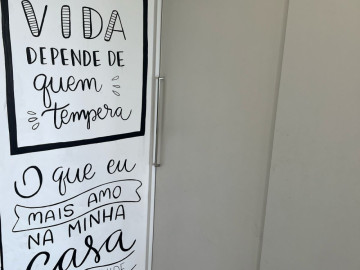 VIDA
DEPENDE DE
quem
tempera
O que eu
MAIS AMO
NA MINHA
Casa